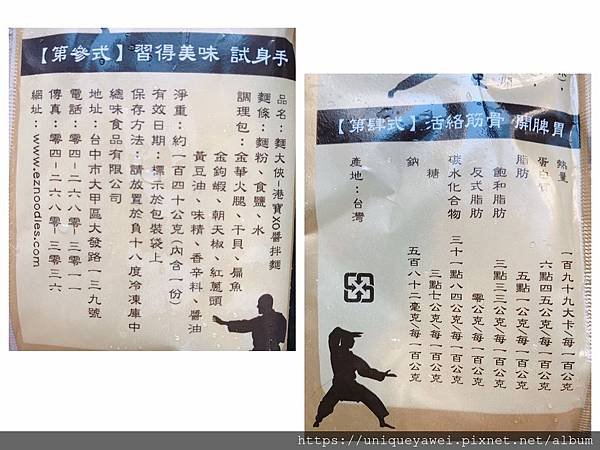 【第參式】習得美味 試身手
品名：麵大俠-港寶XO醬拌麵
麵條：麵粉、食鹽、水
調理包：金華火腿、干貝、扁魚
金鉤蝦、朝天椒、紅蔥頭
黃豆油、味精、香辛料、醬油
淨重：約一百四十公克(內含一份)
有效日期：標示於包裝袋上
保存方法：請放置於負十八度冷凍庫中
總味食品有限公司
地址：台中市大甲區大發路一三九號
電話：零四-二六八零-三零一一
傳真：零四-二六八零-三零三六
網址：www.eznoodles.com
【第肆式】活絡筋骨 開脾胃
熱量 一百九十九大卡/每一百公克
蛋白質 六點四五公克/每一百公克
脂肪 五點一公克/每一百公克
飽和脂肪 三點三三公克/每一百公克
反式脂肪 零公克/每一百公克
碳水化合物 三十一點八四公克/每一百公克
糖 三點七公克/每一百公克
鈉 五百八十二毫克/每一百公克
產地：台灣
https://uniqueyawei.pixnet.net/album